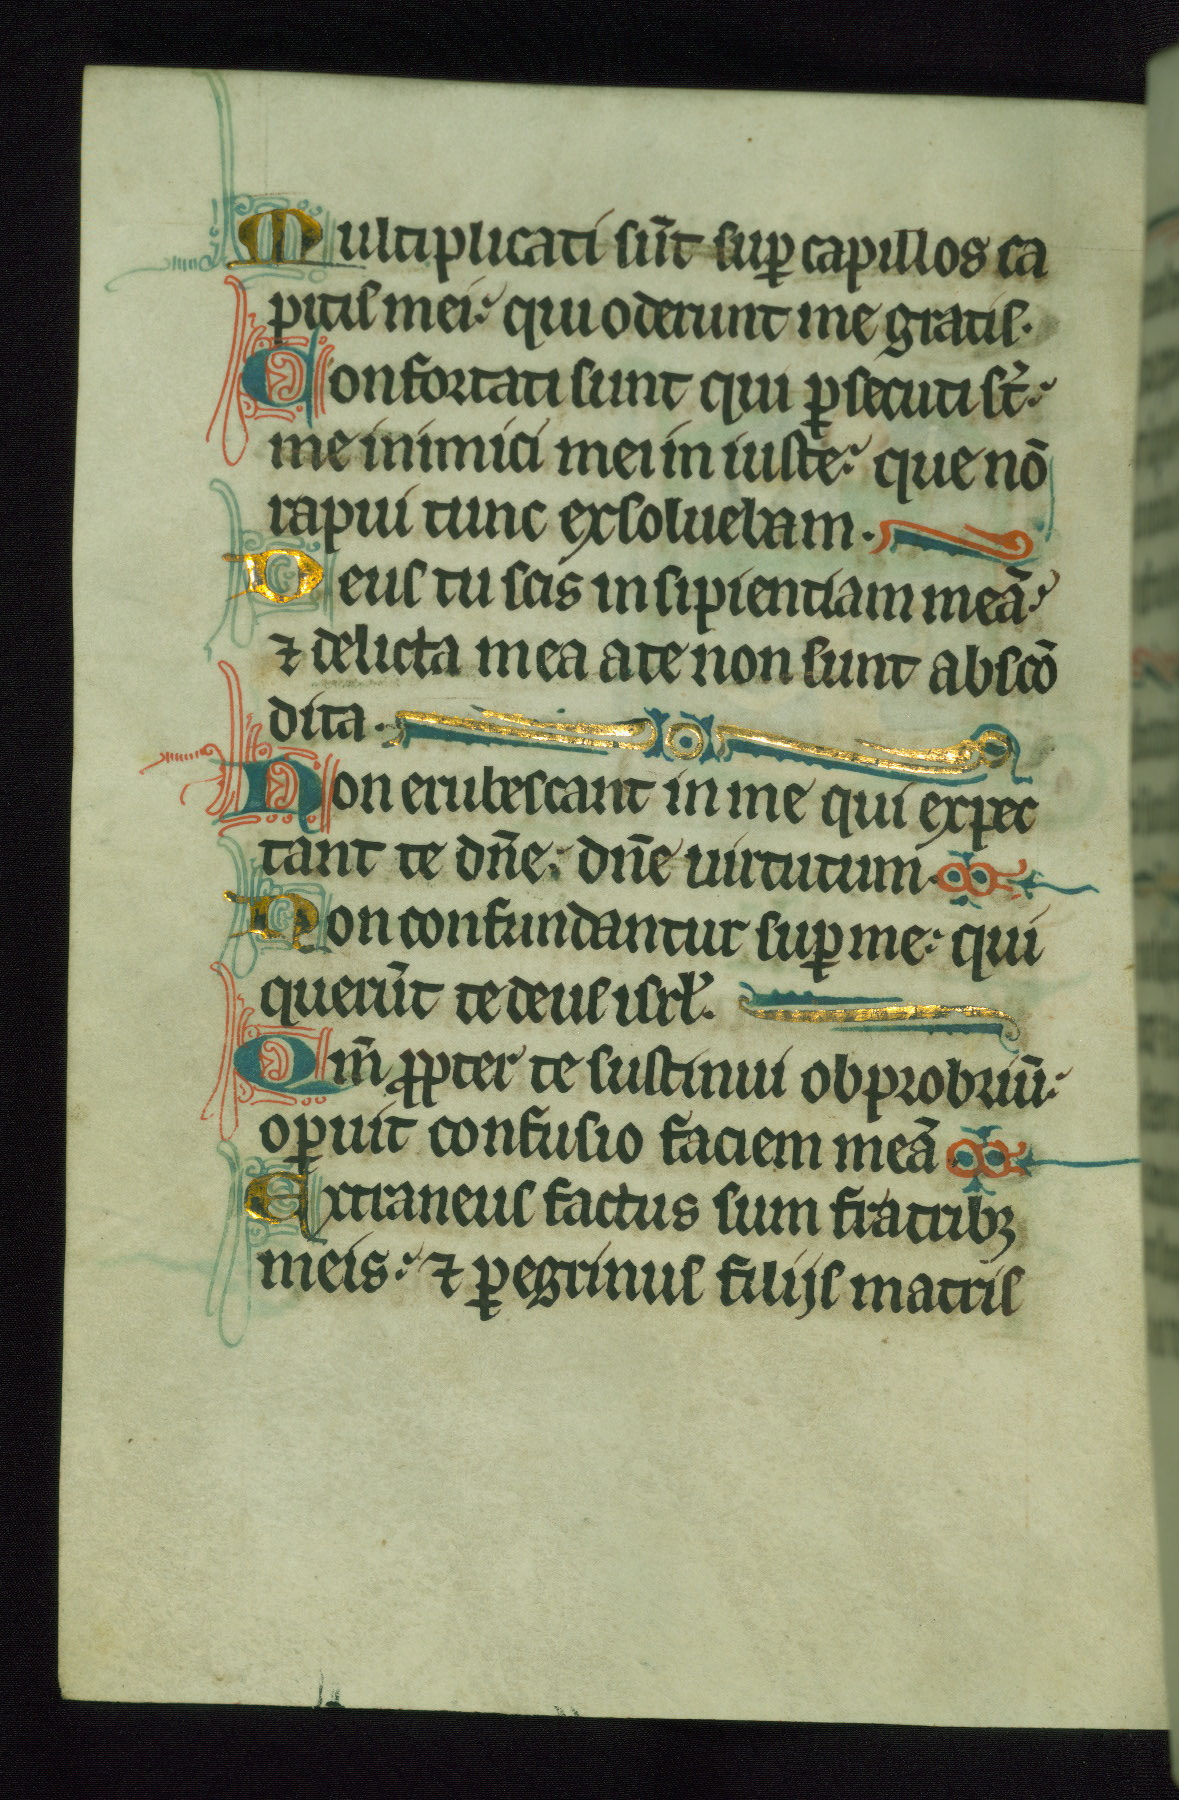 Multiplicati sūt sup̱ capillos ca
pitis mei: qui oderunt me gratis.
Confortati sunt qui p̱secuti st̄:
me inimici mei in iuste: que nō
rapui tunc exsoluebam.
Deus tu scis insipientiam meā:
⁊ delicta mea a te non sunt abscō
dita.
Non erubescant in me qui expec
tant te dn̄e: dn̄e uirtutum.
Non confundantur sup̱ me: qui
querūt te deus isrl̄.
Qm̄ ꝓpter te sustinui obprobriū:
op̱uit confusio faciem meā
Extraneus factus sum fratribꝫ
meis: ⁊ p̱egrinus filijs matris